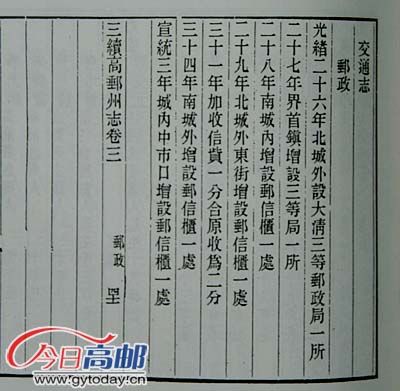 交通志
郵政
光緒二十六年北城外設大清三等郵政局一所
二十七年界首鎮增設三等局一所
二十八年南城內增設郵信櫃一處
二十九年北城外東街增設郵信櫃一處
三十一年加收信貲一分合原收爲二分
三十四年南城外增設郵信櫃一處
宣統三年城內中市口增設郵信櫃一處
三續高郵州志卷三
郵政
今日高邮
www.gytoday.cn